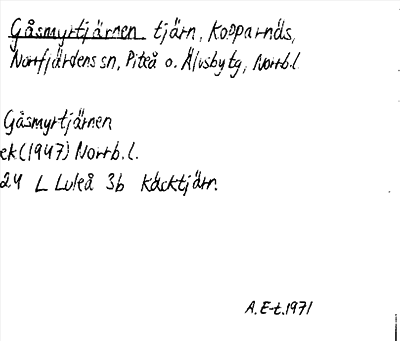 Gåsmyrtjärnen tjärn, Kopparnäs,
Norrfjärdens sn, Piteå o. Älvsby tg, Norrb.l
Gåsmyrtjärnen
ek (1947) Norrb.l.
24 L Luleå 3b Käcktjärn.
A.E-t.1971